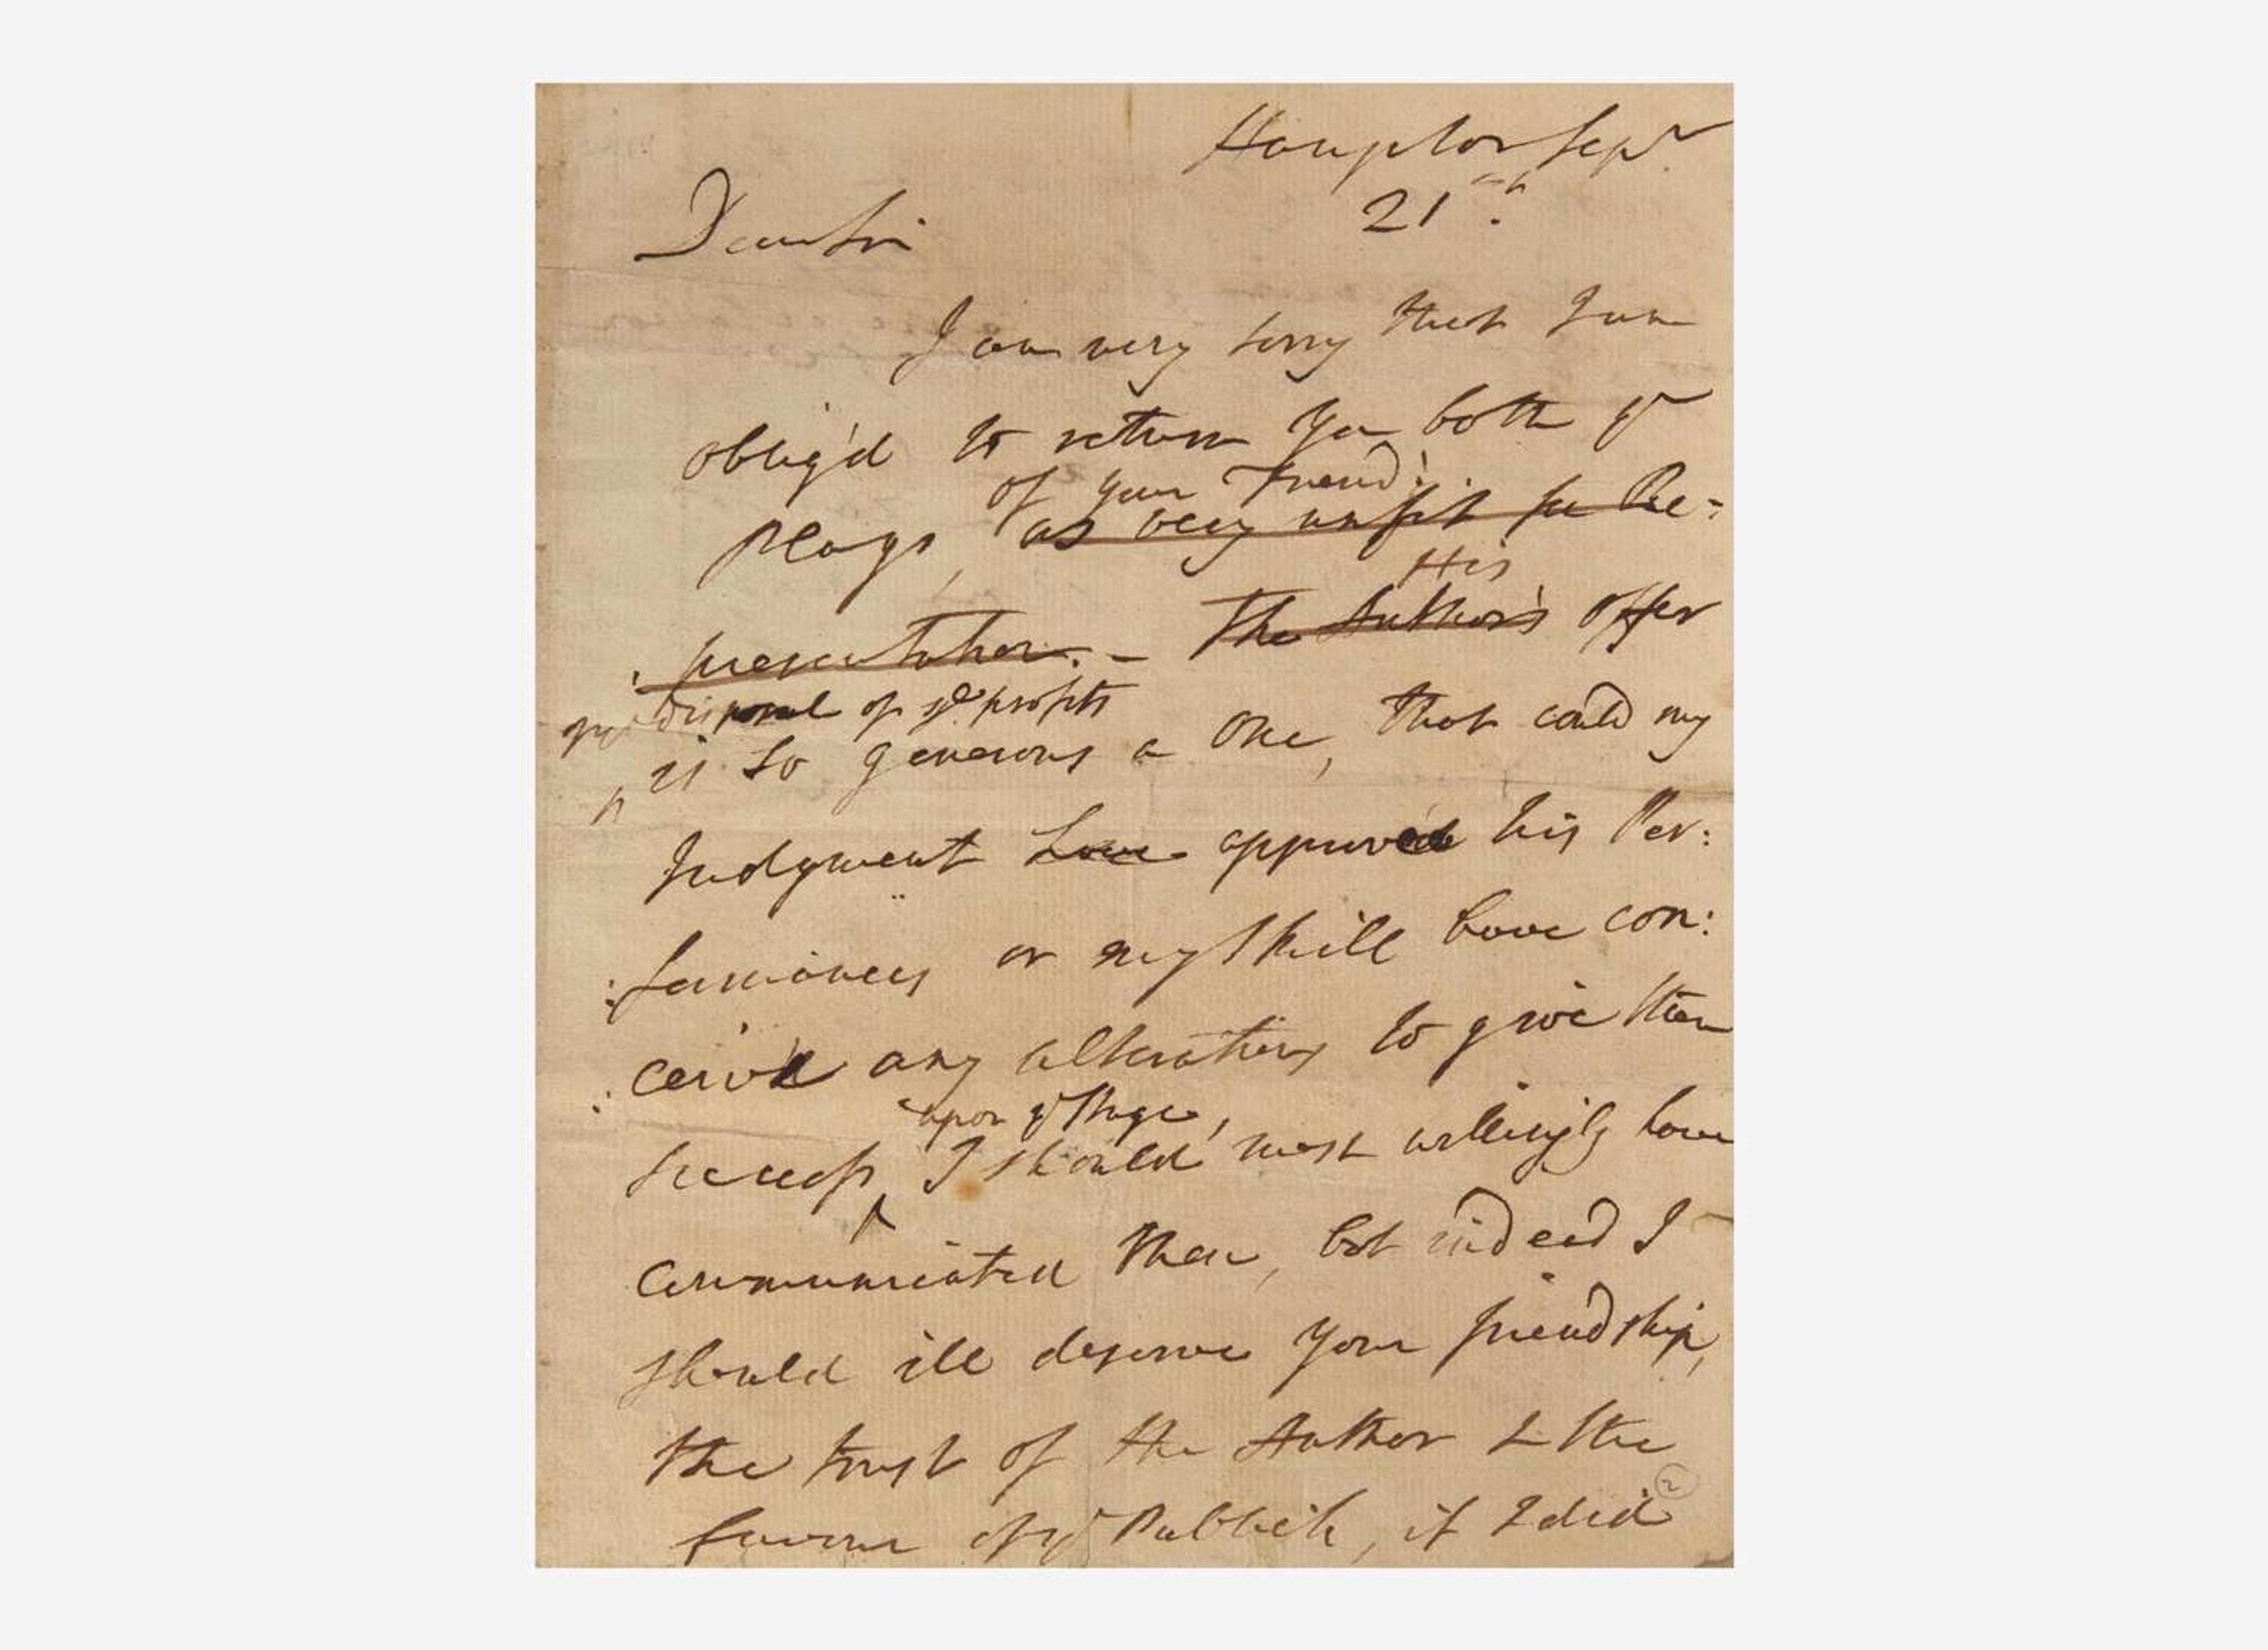 Hampton Sepr.
21st.
Dear Sir
I am very sorry that I am
oblig'd to return You both ye
of your Friend's.
Plays, as very unfit for Re=
His
=presentation. – The Author's offer
disposal of ye profits
is so generous a One, that could my
Judgment have approved his Per:
:formances or my Skill have con:
:ceiv'd any alterations to give them
upon ye Stage,
success, I should most willingly have
communicated them, but indeed I
should ill deserve your friendship,
the trust of the Author & the
favour of ye Publick, if I did
2